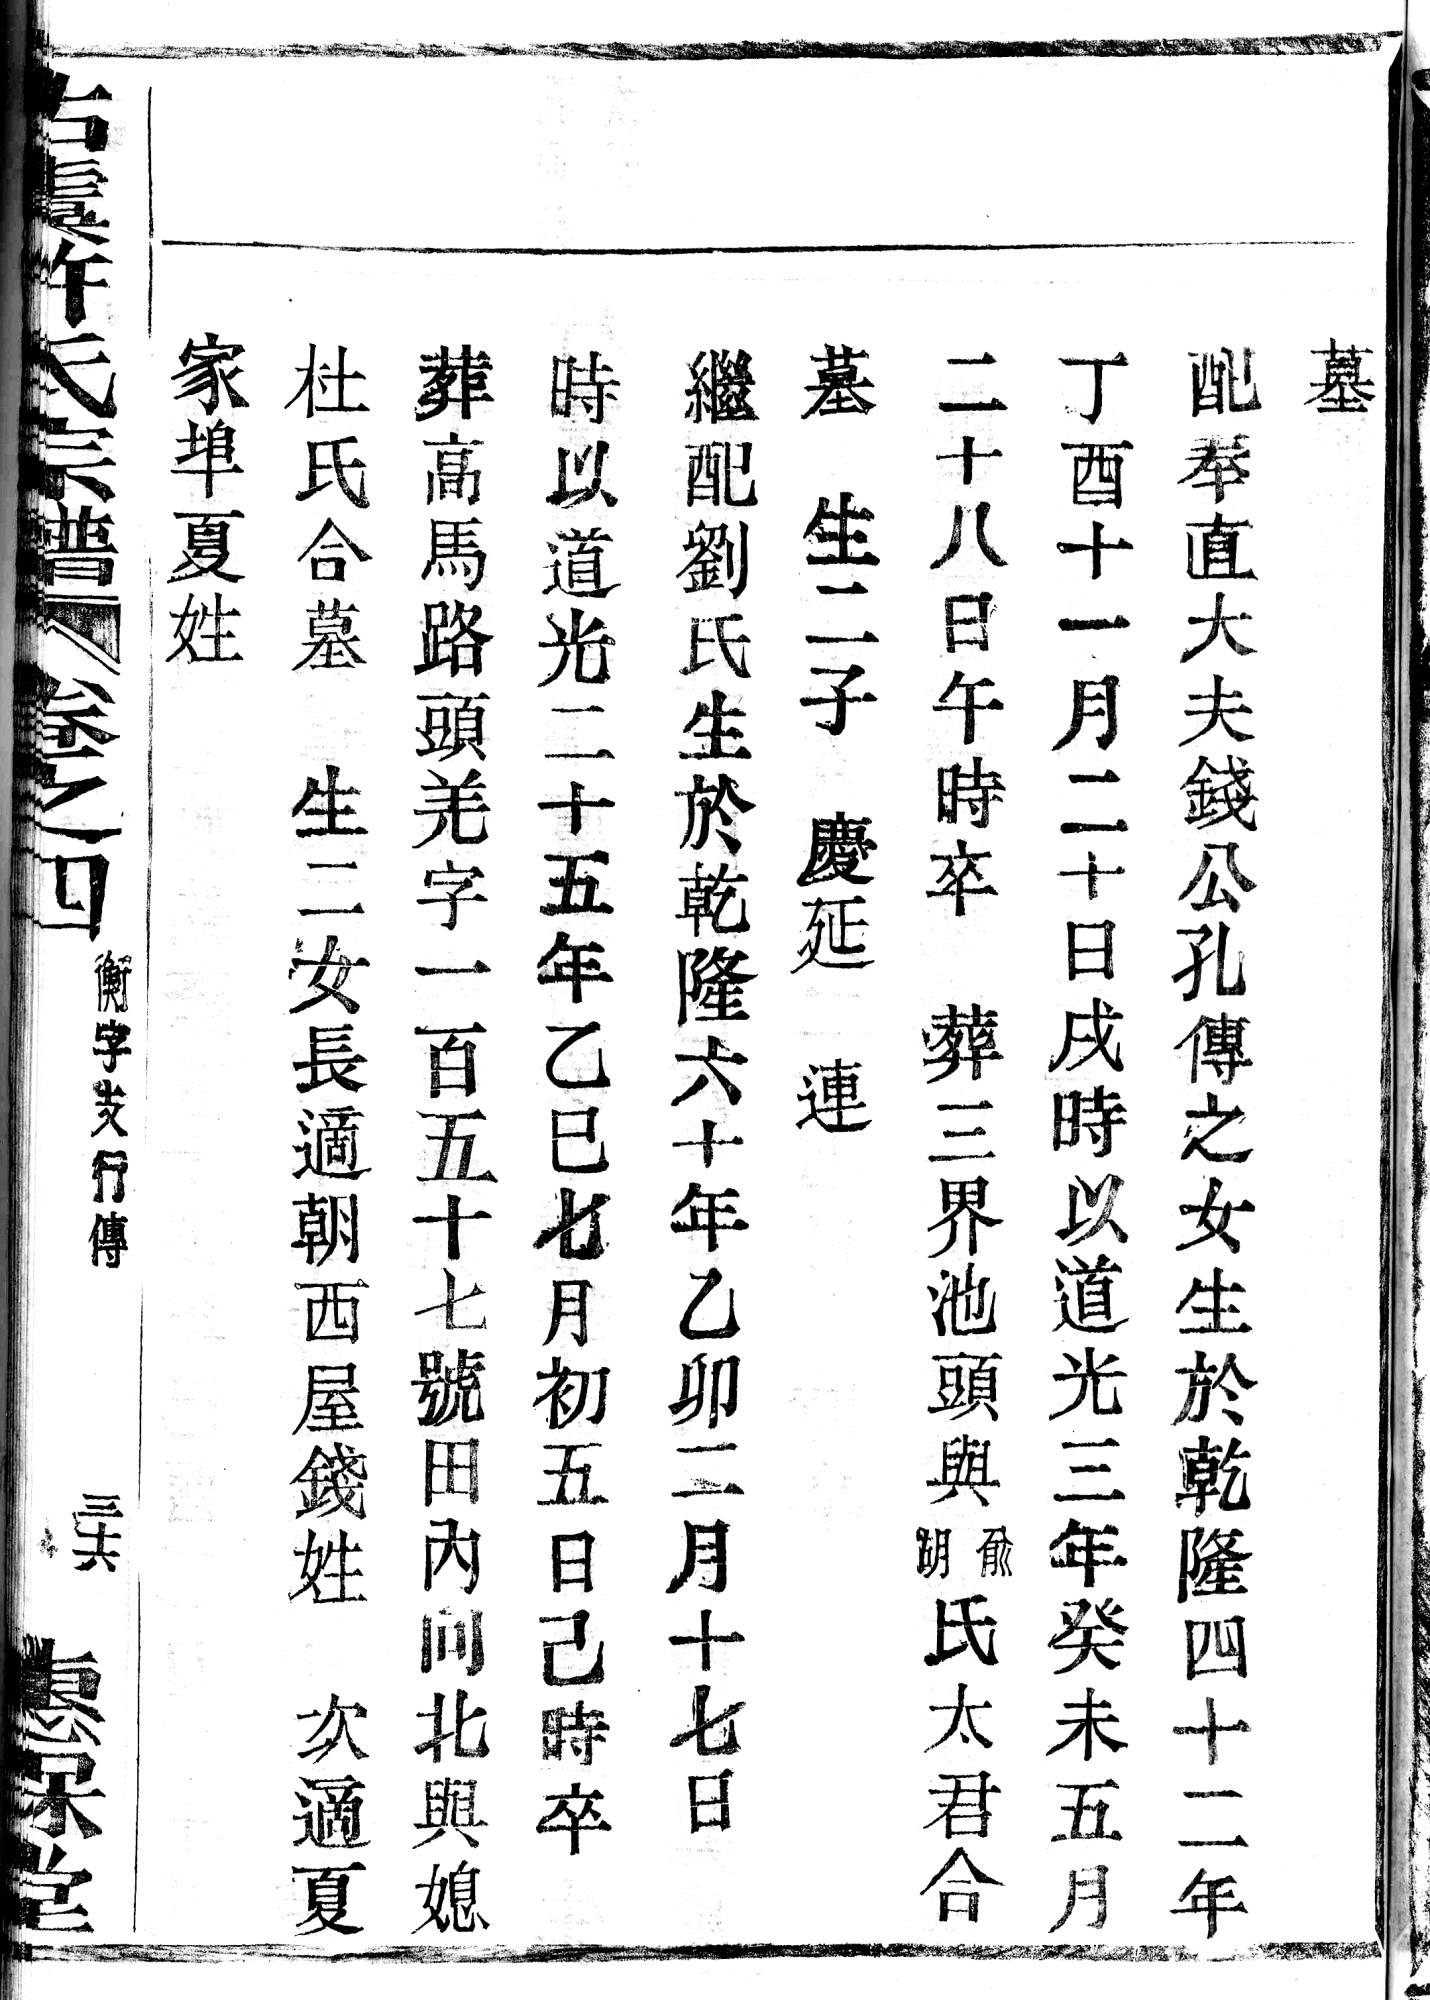 墓
配奉直大夫錢公孔傳之女生於乾隆四十二年
丁酉十一月二十日戌時以道光三年癸未五月
二十八日午時卒　葬三界池頭與俞胡氏太君合
墓　生二子　慶延　連
繼配劉氏生於乾隆六十年乙卯二月十七日
時以道光二十五年乙巳七月初五日己時卒
葬高馬路頭羌字一百五十七號田內向北與媳
杜氏合墓　生二女長適朝西屋錢姓　次適夏
家埠夏姓
古虞許氏宗譜　卷之四　衡字支行傳　三十六　惠保堂